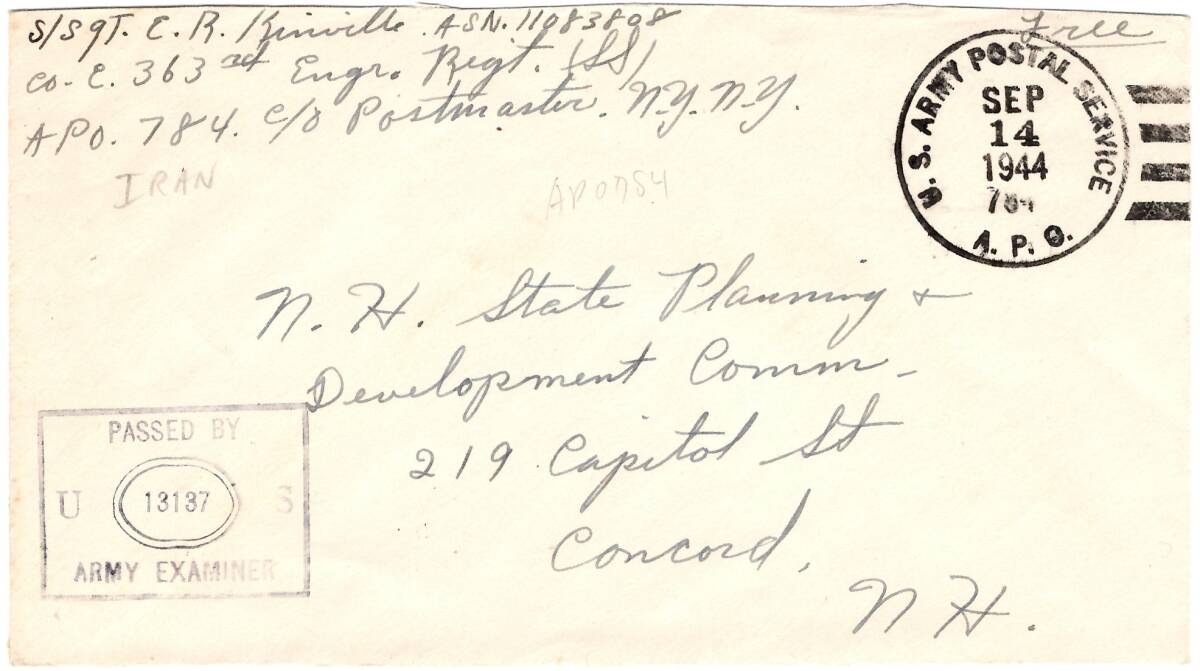 S/Sgt. E. R. Kinville. ASN. 11083808
Co. E. 363rd Engr. Regt. (SS)
APO. 784. c/o Postmaster. N.Y. N.Y.
Free
U.S. ARMY POSTAL SERVICE
SEP
14
1944
784
A.P.O.
IRAN
APO784
N. H. State Planning +
Development Comm-
219 Capitol St
Concord,
N H.
PASSED BY
U 13137 S
ARMY EXAMINER